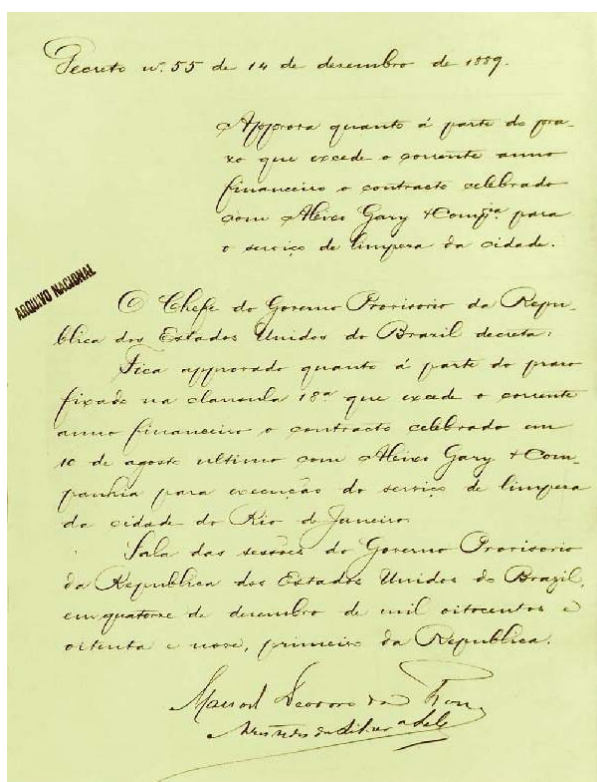 Decreto nº 55 de 14 de dezembro de 1889.
Approva quanto á parte do pra-
zo que excede o corrente anno
financeiro o contracto celebrado
com Aleixo Gary & Compia para
o serviço de limpeza da cidade.
ARQUIVO NACIONAL
O Chefe do Governo Provisorio da Repu-
blica dos Estados Unidos do Brazil decreta:
Fica approvado quanto á parte do prazo
fixado na clausula 18ª que excede o corrente
anno financeiro o contracto celebrado em
10 de agosto ultimo com Aleixo Gary & Com-
panhia para execução do serviço de limpeza
da cidade do Rio de Janeiro.
Sala das sessões do Governo Provisorio
da Republica dos Estados Unidos do Brazil,
em quatorze de dezembro de mil oitocentos e
oitenta e nove, primeiro da Republica.
Manoel Deodoro da